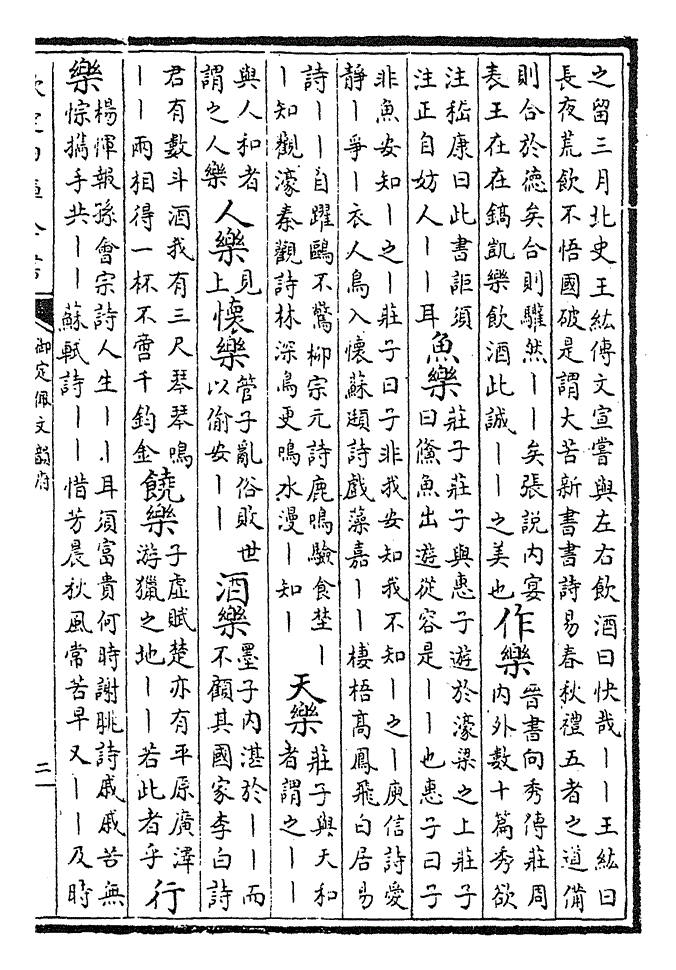 之留三月北史王紘傳文宣嘗與左右飲酒曰快哉丨丨王紘曰
長夜荒飲不悟國破是謂大苦新書書詩易春秋禮五者之道備
則合於德矣合則驩然丨丨矣張說內宴
表王在在鎬凱樂飲酒此誠丨丨之美也
作樂
晉書向秀傳莊周
內外數十篇秀欲
注嵇康曰此書詎須
注正自妨人丨丨耳
魚樂
莊子莊子與惠子遊於濠梁之上莊子
曰鯈魚出遊從容是丨丨也惠子曰子
非魚安知丨之丨莊子曰子非我安知我不知丨之丨庾信詩愛
靜丨爭丨衣人鳥入懷蘇頲詩戲藻嘉丨丨棲梧髙鳳飛白居易
詩丨丨自躍鷗不驚柳宗元詩鹿鳴驗食埜丨
丨知觀濠秦觀詩林深鳥更鳴水漫丨知丨
天樂
莊子與天和
者謂之丨丨
與人和者
謂之人樂
人樂
見
上
懷樂
管子亂俗敗世
以偷安丨丨
酒樂
墨子內湛於丨丨而
不顧其國家李白詩
君有數斗酒我有三尺琴琴鳴
丨丨兩相得一杯不啻千鈞金
饒樂
子虛賦楚亦有平原廣澤
游獵之地丨丨若此者乎
行
樂
楊惲報孫會宗詩人生丨丨耳須富貴何時謝朓詩戚戚苦無
悰攜手共丨丨蘇軾詩丨丨惜芳晨秋風常苦早又丨丨及時
欽定四庫全書
御定佩文韻府
二